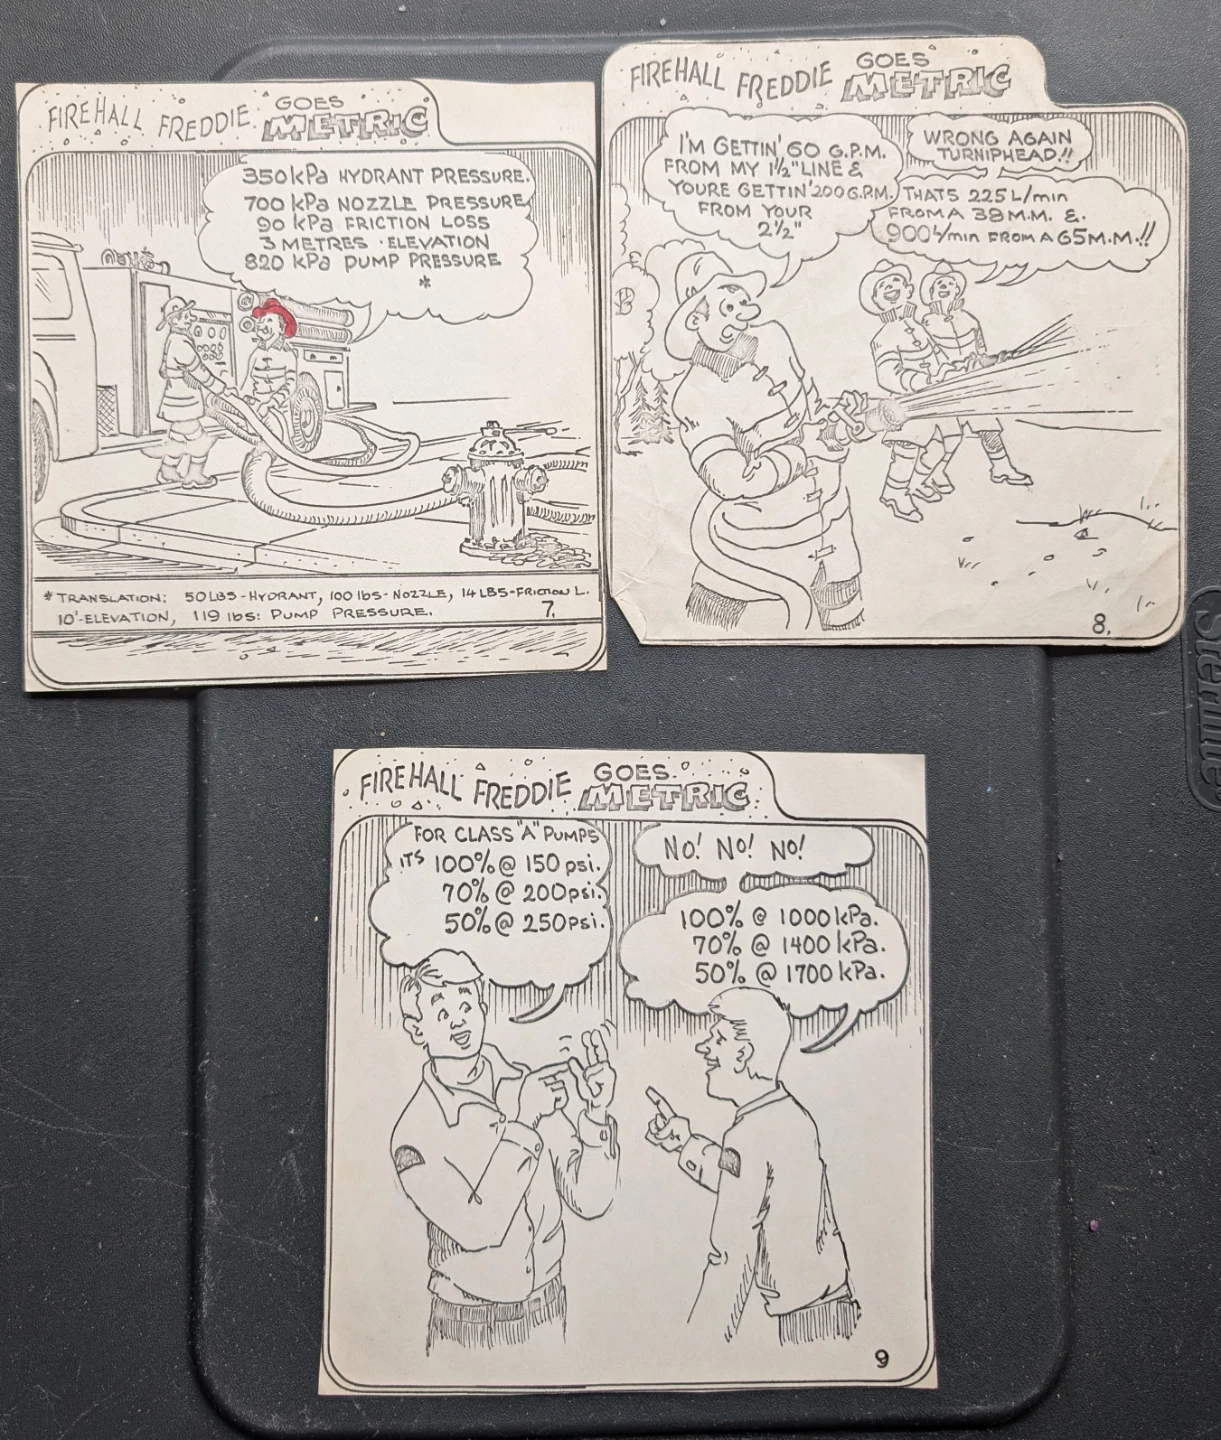 FIREHALL FREDDIE GOES METRIC
350 kPa HYDRANT PRESSURE.
700 kPa NOZZLE PRESSURE
90 kPa FRICTION LOSS
3 METRES · ELEVATION
820 kPa PUMP PRESSURE
*
* TRANSLATION: 50 LBS-HYDRANT, 100 lbs-NOZZLE, 14 LBS-FRICTION L.
10'-ELEVATION, 119 lbs: PUMP PRESSURE.
7.
FIREHALL FREDDIE GOES METRIC
I'M GETTIN' 60 G.P.M.
FROM MY 1½" LINE &
YOURE GETTIN' 200 G.P.M.
FROM YOUR
2½"
WRONG AGAIN
TURNIPHEAD.!!
THATS 225 L/min
FROM A 38 M.M. &.
900 L/min FROM A 65 M.M.!!
8.
FIREHALL FREDDIE GOES METRIC
FOR CLASS "A" PUMPS
ITS 100% @ 150 psi.
70% @ 200 psi.
50% @ 250 psi.
NO! NO! NO!
100% @ 1000 kPa.
70% @ 1400 kPa.
50% @ 1700 kPa.
9
Sterilite